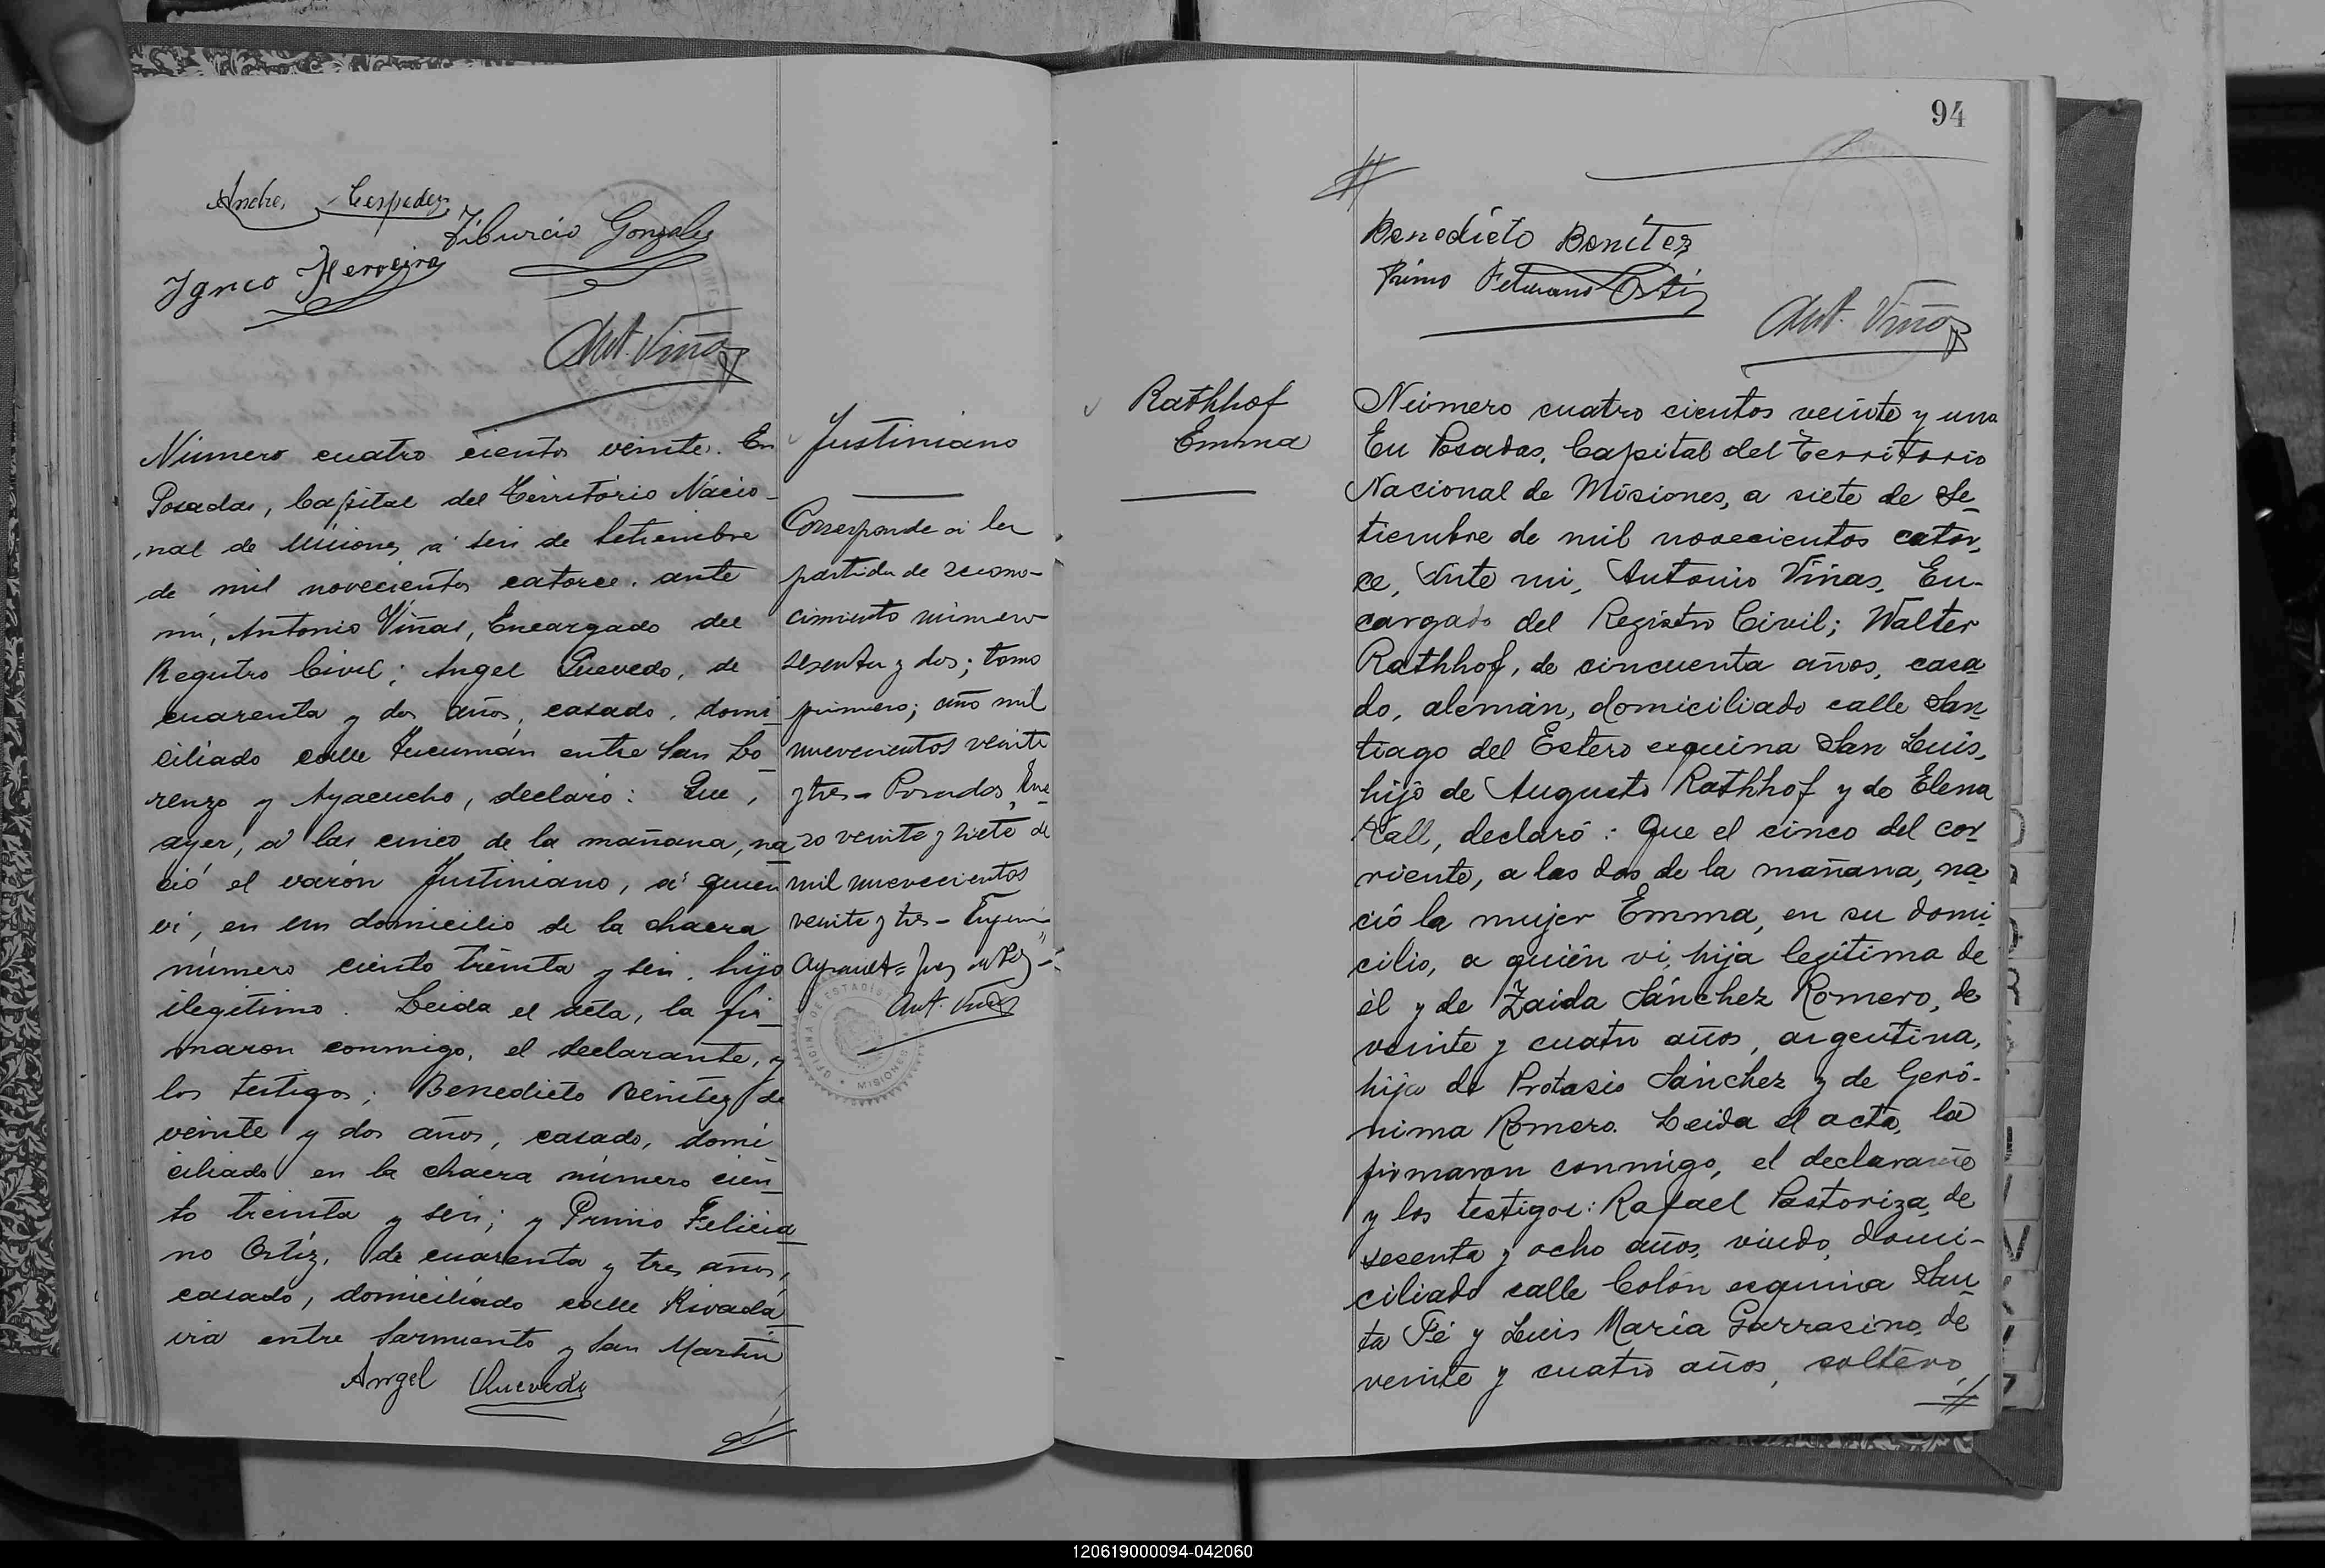 Andres Cespedez
Tiburcio Gonzales
Ignco Herreira
Ant. Viñas
Número cuatro ciento veinte. En
Posadas, Capital del Territorio Nacio-
nal de Misiones, á seis de Setiembre
de mil novecientos catorce. ante
mí, Antonio Viñas, Encargado del
Registro Civil; Angel Quevedo, de
cuarenta y dos años, casado, domi
ciliado calle Tucumán entre San Lo
renzo y Ayacucho, declaró: Que,
ayer, á las cinco de la mañana, na
ció el varón Justiniano, á quien
ví, en su domicilio de la chacra
número ciento treinta y seis, hijo
ilegítimo. Leida el acta, la fir
maron conmigo, el declarante, y
los testigos; Benedicto Benítez de
veinte y dos años, casado, domi
ciliado en la chacra número cien
to treinta y seis; y Primo Felicia
no Ortíz, de cuarenta y tres años,
casado, domiciliado calle Rivada
via entre Sarmiento y San Martín
Angel Quevedo
Justiniano
Corresponde á la
partida de recono-
cimiento número
sesenta y dos; tomo
primero; año mil
nuevecientos veinte
y tres - Posadas, Ene
ro veinte y siete de
mil nuevecientos
veinte y tres -
Ant. Viñas
OFICINA DE ESTADIS
MISIONES
94
Benedicto Benitez
Primo Feliciano Ortiz
Ant. Viñas
Rathhof
Emma
Número cuatro cientos veinte y uno
En Posadas, Capital del Territorio
Nacional de Misiones, a siete de Se-
tiembre de mil novecientos cator,
ce, Ante mi, Antonio Viñas, En-
cargado del Registro Civil; Walter
Rathhof, de cincuenta años, casa
do, alemán, domiciliado calle San
tiago del Estero esquina San Luis,
hijo de Augusto Rathhof y de Elena
Kall, declaró: Que el cinco del cor
riente, a las dos de la mañana, na
ció la mujer Emma, en su domi
cilio, a quién vi, hija legítima de
él y de Zaida Sánchez Romero, de
veinte y cuatro años, argentina,
hija de Protasio Sánchez y de Geró-
nima Romero. Leida el acta, la
firmaron conmigo, el declarante
y los testigos: Rafael Pastoriza, de
sesenta y ocho años, viudo, domi-
ciliado calle Colón esquina San
ta Fé y Luis María Garrasino, de
veinte y cuatro años, soltero,
120619000094-042060